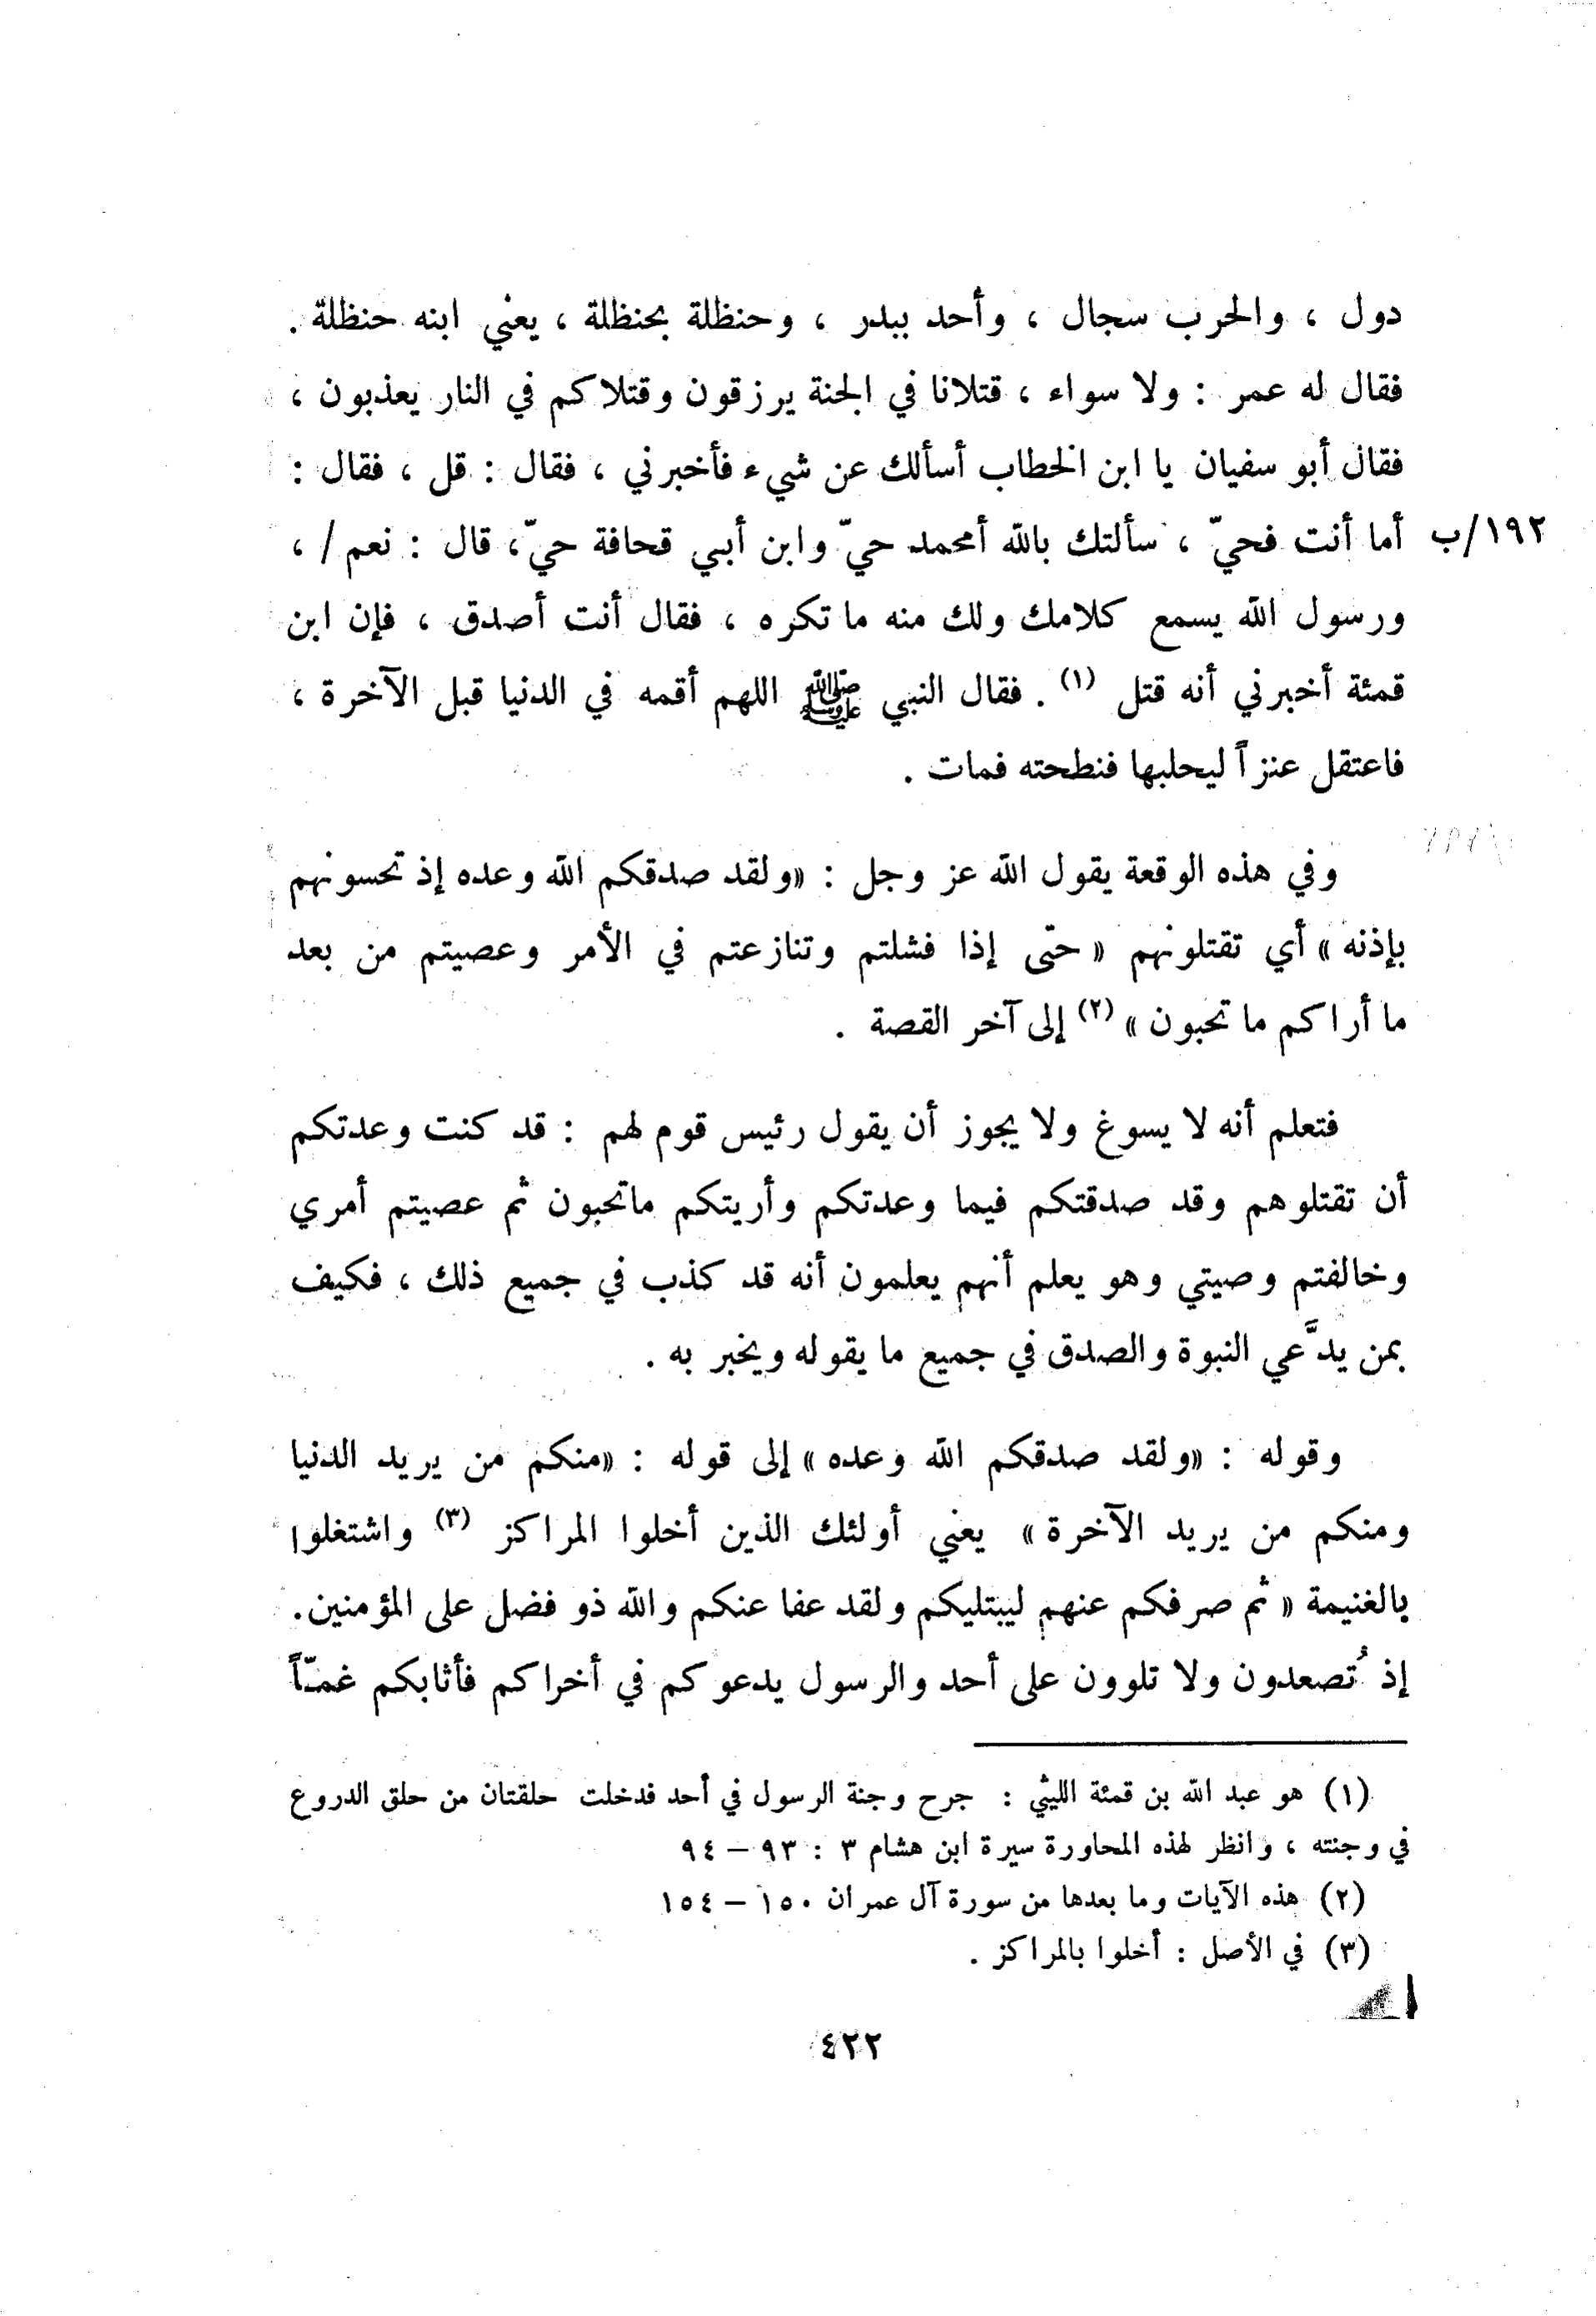 دول ، والحرب سجال ، وأحد ببدر ، وحنظلة بحنظلة ، يعني ابنه حنظلة .
فقال له عمر : ولا سواء ، قتلانا في الجنة يرزقون وقتلاكم في النار يعذبون ،
فقال أبو سفيان يا ابن الخطاب أسألك عن شيء فأخبرني ، فقال : قل ، فقال :
١٩٢/ب أما أنت فحيّ ، سألتك بالله أمحمد حيّ وابن أبي قحافة حيّ، قال : نعم/ ،
ورسول الله يسمع كلامك ولك منه ما تكره ، فقال أنت أصدق ، فإن ابن
قمئة أخبرني أنه قتل (١) . فقال النبي ﷺ اللهم أقمه في الدنيا قبل الآخرة ،
فاعتقل عنزاً ليحلبها فنطحته فمات .
وفي هذه الوقعة يقول الله عز وجل : «ولقد صدقكم الله وعده إذ تحسونهم
بإذنه» أي تقتلونهم « حتى إذا فشلتم وتنازعتم في الأمر وعصيتم من بعد
ما أراكم ما تحبون» (٢) إلى آخر القصة .
فتعلم أنه لا يسوغ ولا يجوز أن يقول رئيس قوم لهم : قد كنت وعدتكم
أن تقتلوهم وقد صدقتكم فيما وعدتكم وأريتكم ماتحبون ثم عصيتم أمري
وخالفتم وصيتي وهو يعلم أنهم يعلمون أنه قد كذب في جميع ذلك ، فكيف
بمن يدَّعي النبوة والصدق في جميع ما يقوله ويخبر به .
وقوله : «ولقد صدقكم الله وعده» إلى قوله : «منكم من يريد الدنيا
ومنكم من يريد الآخرة» يعني أولئك الذين أخلوا المراكز (٣) واشتغلوا
بالغنيمة « ثم صرفكم عنهم ليبتليكم ولقد عفا عنكم والله ذو فضل على المؤمنين.
إذ تُصعدون ولا تلوون على أحد والرسول يدعوكم في أخراكم فأثابكم غمّاً
(١) هو عبد الله بن قمئة الليثي : جرح وجنة الرسول في أحد فدخلت حلقتان من حلق الدروع
في وجنته ، وانظر لهذه المحاورة سيرة ابن هشام ٣ : ٩٣ – ٩٤
(٢) هذه الآيات وما بعدها من سورة آل عمران ١٥٠ – ١٥٤
(٣) في الأصل : أخلوا بالمراكز .
٤٢٢